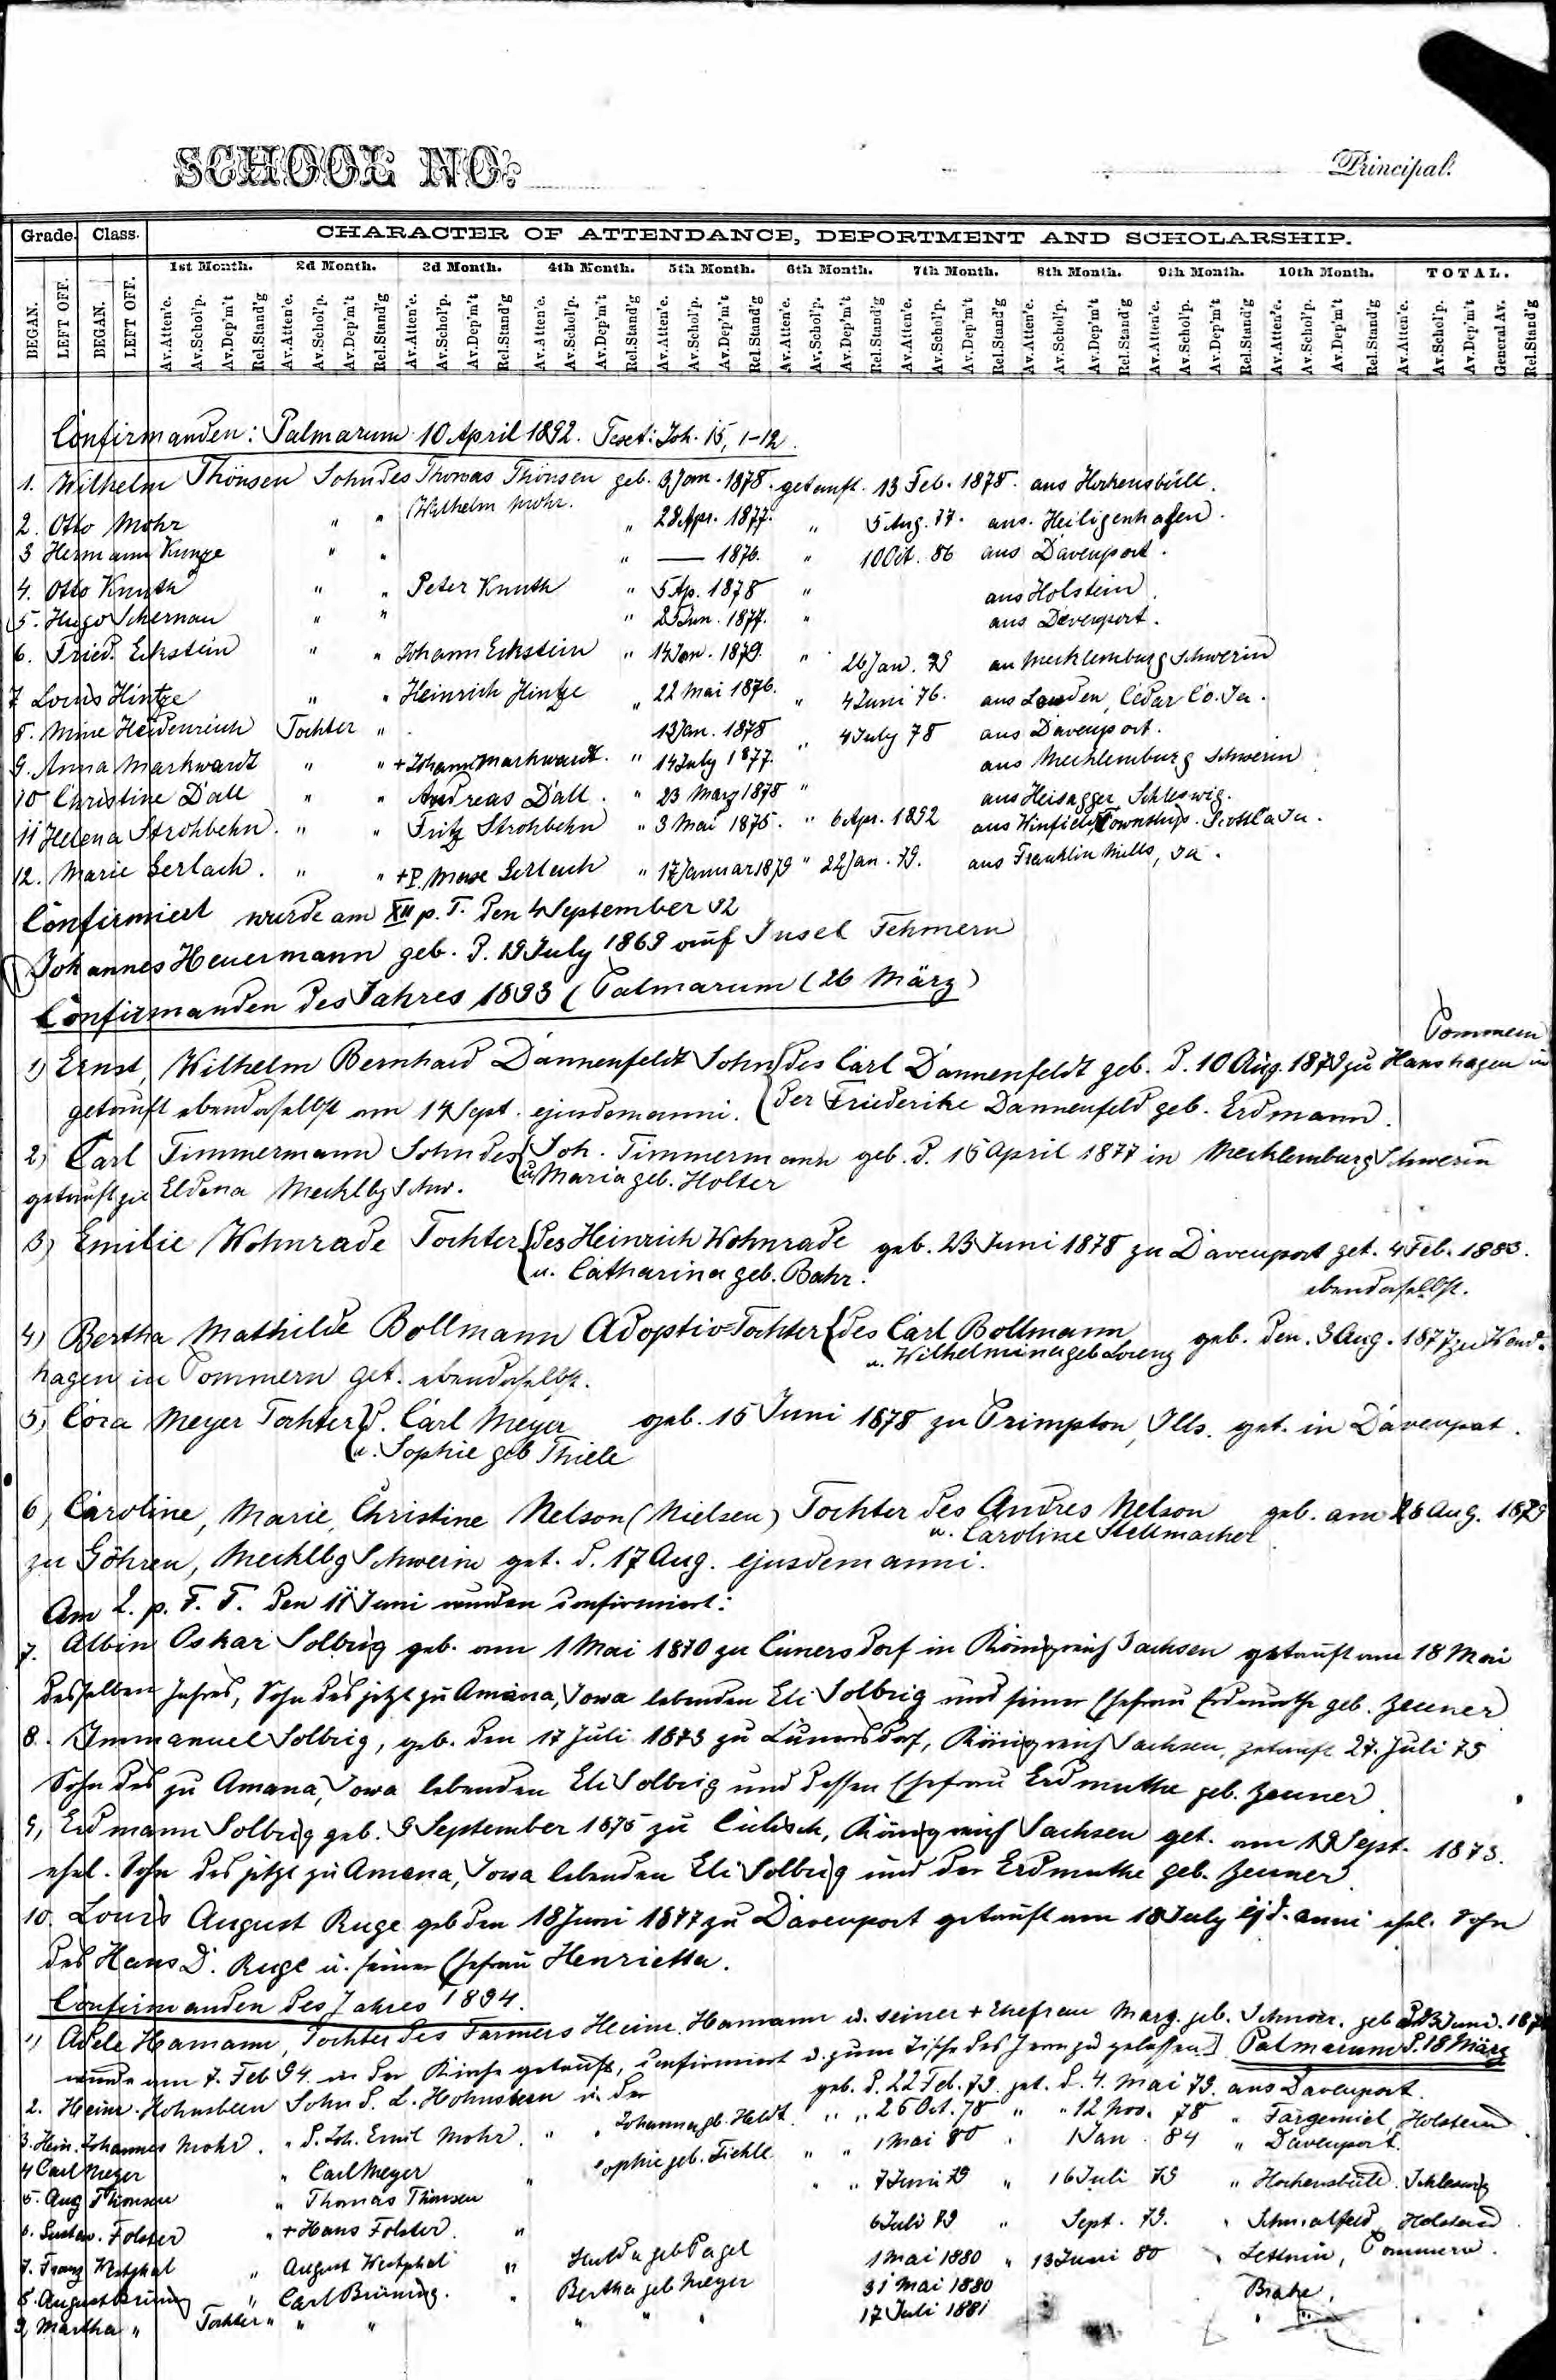 SCHOOL NO. Principal.
Grade. Class. CHARACTER OF ATTENDANCE, DEPORTMENT AND SCHOLARSHIP.
1st Month. 2d Month. 3d Month. 4th Month. 5th Month. 6th Month. 7th Month. 8th Month. 9th Month. 10th Month. TOTAL.
BEGAN. LEFT OFF. BEGAN. LEFT OFF. Av.Atten'e. Av.Schol'p. Av.Dep'm't Rel.Stand'g Av.Atten'e. Av.Schol'p. Av.Dep'm't Rel.Stand'g Av.Atten'e. Av.Schol'p. Av.Dep'm't Rel.Stand'g Av.Atten'e. Av.Schol'p. Av.Dep'm't Rel.Stand'g Av.Atten'e. Av.Schol'p. Av.Dep'm't Rel.Stand'g Av.Atten'e. Av.Schol'p. Av.Dep'm't Rel.Stand'g Av.Atten'e. Av.Schol'p. Av.Dep'm't Rel.Stand'g Av.Atten'e. Av.Schol'p. Av.Dep'm't Rel.Stand'g Av.Atten'e. Av.Schol'p. Av.Dep'm't Rel.Stand'g Av.Atten'e. Av.Schol'p. Av.Dep'm't Rel.Stand'g Av.Atten'e. Av.Schol'p. Av.Dep'm't General Av. Rel.Stand'g
Confirmanden: Palmarum 10 April 1892. Text: Joh. 15, 1-12.
1. Wilhelm Thönsen Sohn des Thomas Thönsen geb. 9 Jan. 1878. getauft. 13 Feb. 1878. aus Horhensbüll.
2. Otto Mohr " " Wilhelm Mohr. " 28 Apr. 1877. " 5 Aug. 77. aus. Heiligenhafen.
3 Hermann Kunze " " " — 1876. " 10 Oct. 86 aus Davenport.
4. Otto Knuth " " Peter Knuth " 5 Ap. 1878 " aus Holstein.
5. Hugo Schernau " " " 25 Jun. 1877. " aus Davenport.
6. Fried. Eckstein " " Johann Eckstein " 14 Jan. 1879. " 26 Jan. 79 au Mecklemburg Schwerin
7 Louis Hintze " " Heinrich Hintze " 22 Mai 1876. " 4 Juni 76. aus Louden, Cedar Co. Ia.
8. Mine Heidenreich Tochter " 13 Jan. 1878 " 4 July 78 aus Davenport.
9. Anna Markwardt " " + Johann Markwardt. " 14 July 1877. aus Mecklemburg Schwerin
10 Christine Dall " " Andreas Dall. " 23 März 1878 " aus Heisagger Schleswig.
11 Helena Strohbehn. " " Fritz Strohbehn " 3 Mai 1875. " 6 Apr. 1892 aus Winfield Township. Scott Co Ia.
12. Marie Gerlach. " " + P. Gerlach " 17 Januar 1879 " 22 Jan. 79. aus Franklin Mills, Ia.
Confirmiert wurde am XII p. T. den 4 September 92
Johannes Heuermann geb. d. 19 July 1869 auf Insel Fehmern
Confirmanden des Jahres 1893 (Palmarum (26 März)
Pommern
1) Ernst, Wilhelm Bernhard Dannenfeldt Sohn des Carl Dannenfeldt geb. d. 10 Aug. 1879 zu Hanshagen in
getauft ebendaselbst am 14 Sept. ejusdem anni. der Friederike Dannenfeld geb. Erdmann.
2) Carl Timmermann Sohn des Joh. Timmermann geb. d. 15 April 1877 in Mecklemburg Schwerin
getauft zu Eldena Mecklbg Schw. u. Maria geb. Holter
3) Emilie Wohnrade Tochter des Heinrich Wohnrade geb. 23 Juni 1878 zu Davenport get. 4 Feb. 1883.
u. Catharina geb. Bahr. ebendaselbst.
4) Bertha Mathilde Bollmann Adoptiv=Tochter des Carl Bollmann geb. den. 3 Aug. 1877 zu Wend-
u. Wilhelmina geb Lorenz
hagen in Pommern get. ebendaselbst.
5) Cora Meyer Tochter d. Carl Meyer geb. 15 Juni 1878 zu Primpton, Ills. get. in Davenport.
u. Sophie geb Thiele
6) Caroline, Marie, Christine Nelson (Nielsen) Tochter des Andres Nelson geb. am 28 Aug. 1879
u. Caroline Stellmacher
zu Göhren, Mecklbg Schwerin get. d. 17 Aug. ejusdem anni.
Am 2. p. F. T. den 11 Juni wurden confirmiert:
7. Albin Oskar Solbrig geb. am 1 Mai 1870 zu Cunersdorf in Königreich Sachsen getauft am 18 Mai
desselben Jahres, Sohn des jetzt zu Amana, Iowa lebenden Eli Solbrig und seiner Ehefrau Erdmuthe geb. Zeuner
8. Immanuel Solbrig, geb. den 17 Juli 1873 zu Cunersdorf, Königreich Sachsen, getauft 27. Juli 73
Sohn des zu Amana, Iowa lebenden Eli Solbrig und dessen Ehefrau Erdmuthe geb. Zeuner.
9, Erdmann Solbrig geb. 9 September 1875 zu Königreich Sachsen get. am 19 Sept. 1875.
ehel. Sohn des jetzt zu Amana, Iowa lebenden Eli Solbrig und der Erdmuthe geb. Zeuner.
10. Louis August Ruge geb den 18 Juni 1877 zu Davenport getauft am 18 July ejd. anni ehel. Sohn
des Hans D. Ruge u. seiner Ehefrau Henrietta.
Confirmanden des Jahres 1894.
1) Adele Hamann, Tochter des Farmers Heinr. Hamann u. seiner + Ehefrau Marg. geb. Schnoor. geb d. 23 Juni.
wurde am 7. Feb 94. in der Kirche getauft, confirmiert u. zum Tische des Herrn zugelassen.] Palmarum d. 18 März
2. Heinr. Hohnsbeen Sohn d. L. Hohnsbeen u. der geb. d. 22 Feb. 79. get. d. 4. Mai 79. aus Davenport.
3. Hein. Johannes Mohr. " d. Joh. Emil Mohr. " " Johanna gb. Heldt. " " 26 Oct. 78 " " 12 Nov. 78 " Fargemiel, Holstein.
4 Carl Meyer " Carl Meyer " Sophie geb. Tiehle. " " 1 Mai 80 " 1 Jan. 84 " Davenport.
5. Aug Thonsen " Thomas Thonsen " " 7 Juni 79 " 16 Juli 79 " Hochensbüll. Schleswig
6. Gustav. Folster " + Hans Folster. " 6 Juli 79 " Sept. 79. " Schmalfeld, Holstein.
7. Franz Westphal " August Westphal " Hulda geb Pagel 1 Mai 1880 " 13 Juni 80 " Pommern.
8. August Brüning " Carl Brüning. " Bertha geb Meyer 31 Mai 1880 Brake,
9, Martha " Tochter " " " " " " 17 Juli 1881 " "